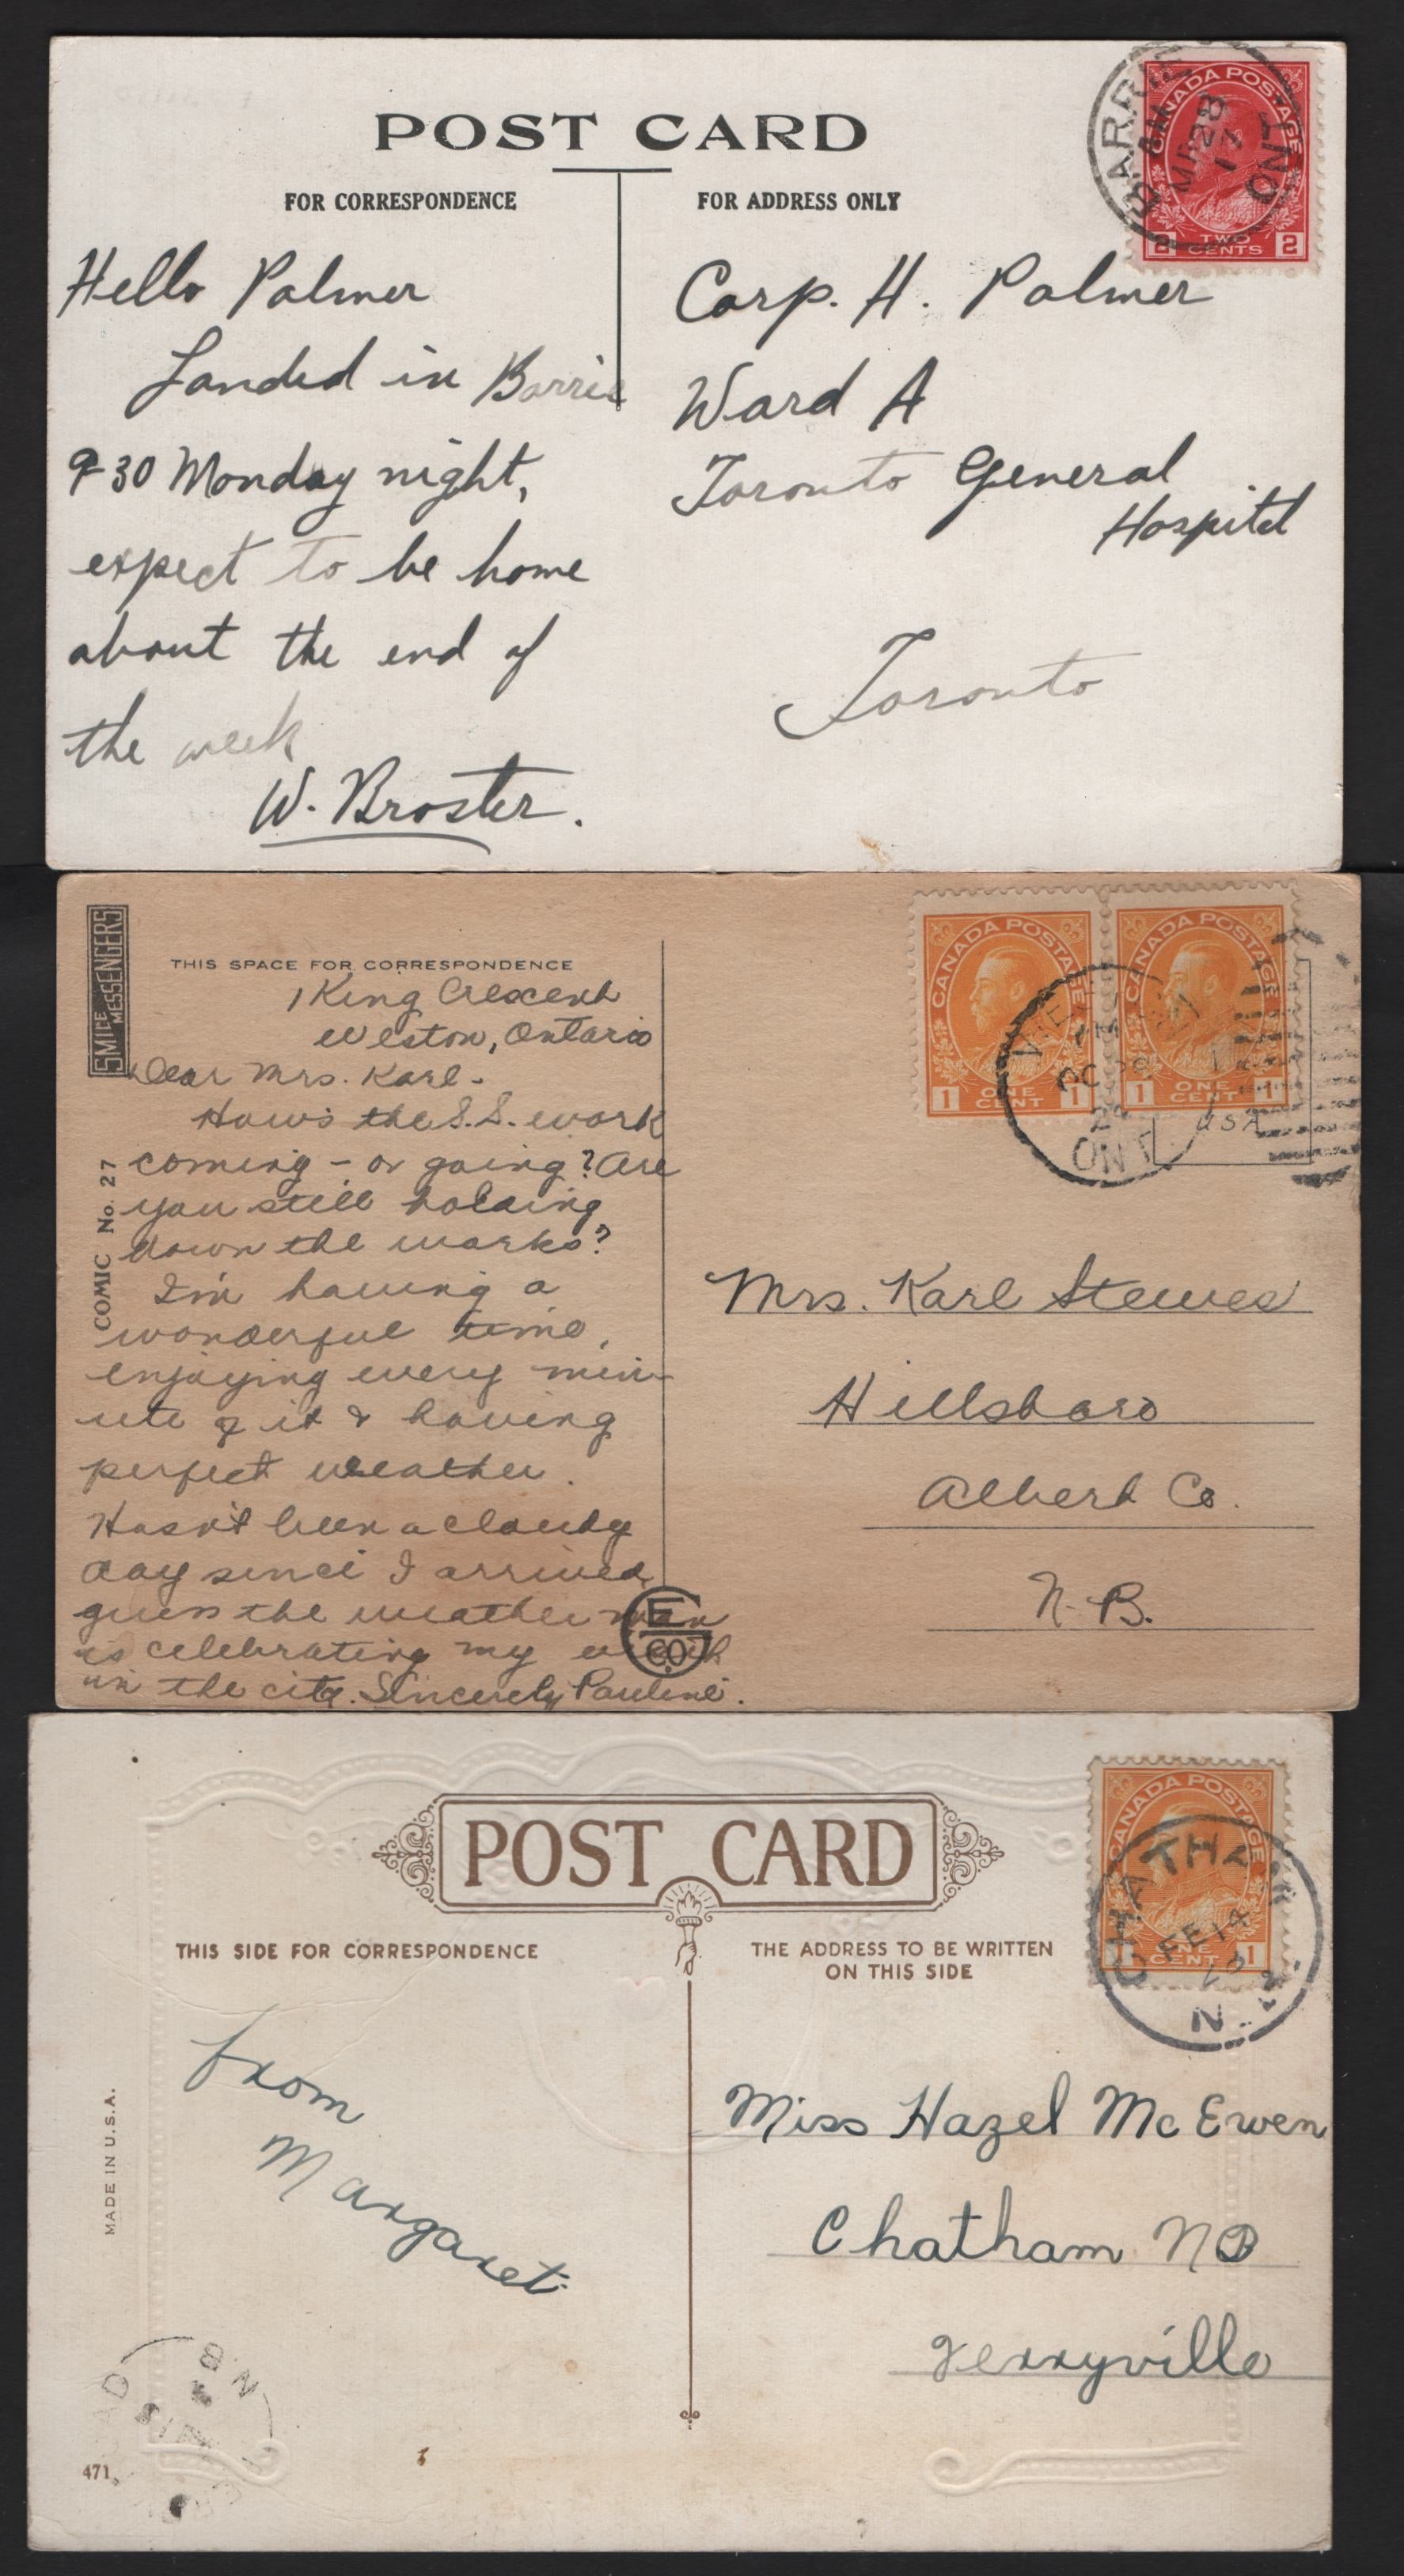 POST CARD
FOR CORRESPONDENCE
FOR ADDRESS ONLY
BARRIE
ONT
CANADA POSTAGE
2 TWO CENTS 2
Hello Palmer
Landed in Barrie
9-30 Monday night,
expect to be home
about the end of
the week
W. Broster.
Corp. H. Palmer
Ward A
Toronto General
Hospital
Toronto
SMILE MESSENGERS
COMIC No. 27
THIS SPACE FOR CORRESPONDENCE
1 King Crescent
Weston, Ontario
Dear Mrs. Karl-
How's the S.S. work
coming - or going? Are
you still holding
down the works?
I'm having a
wonderful time,
enjoying every min-
ute of it & having
perfect weather.
Hasn't been a cloudy
day since I arrived,
guess the weather man
is celebrating my week
in the city. Sincerely Pauline.
E CO.
CANADA POSTAGE
1 ONE CENT 1
CANADA POSTAGE
1 ONE CENT 1
ONT
USA
Mrs. Karl Steeves
Hillsboro
Albert Co.
N.B.
POST CARD
THIS SIDE FOR CORRESPONDENCE
THE ADDRESS TO BE WRITTEN
ON THIS SIDE
CANADA POSTAGE
1 ONE CENT 1
CHATHAM
FE 14
23
N.B.
From
Margaret
Miss Hazel McEwen
Chatham NB
Ferryville
MADE IN U.S.A.
471